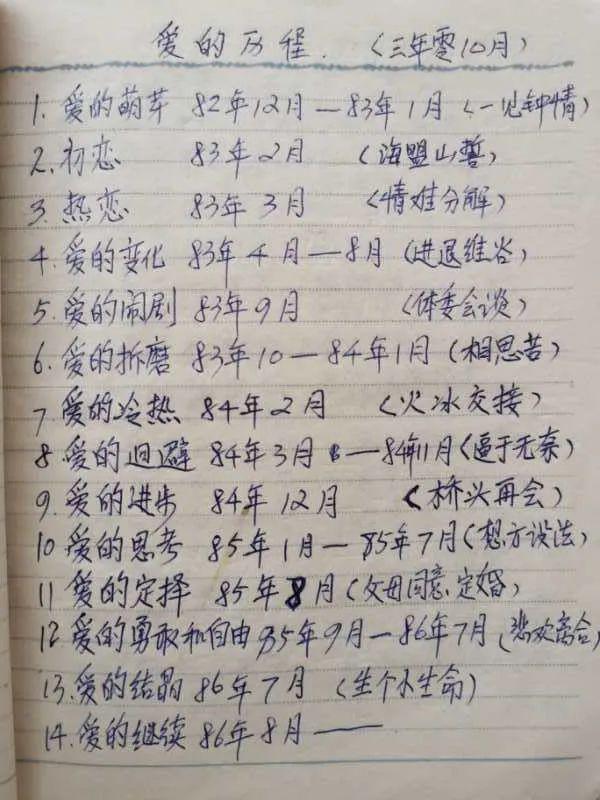 爱的历程.（三年零10月）
1. 爱的萌芽 82年12月—83年1月（一见钟情）
2. 初恋 83年2月（海盟山誓）
3. 热恋 83年3月（情难分解）
4. 爱的变化 83年4月—8月（进退维谷）
5. 爱的闹剧 83年9月（体委会谈）
6. 爱的折磨 83年10—84年1月（相思苦）
7. 爱的冷热 84年2月（火冰交接）
8. 爱的迴避 84年3月—84年11月（逼于无奈）
9. 爱的进步 84年12月（桥头再会）
10 爱的思考 85年1月—85年7月（想方设法）
11 爱的定择 85年8月（父母同意.定婚）
12 爱的勇敢和自由 85年9月—86年7月（悲欢离合）
13. 爱的结晶 86年7月（生个小生命）
14. 爱的继续 86年8月——